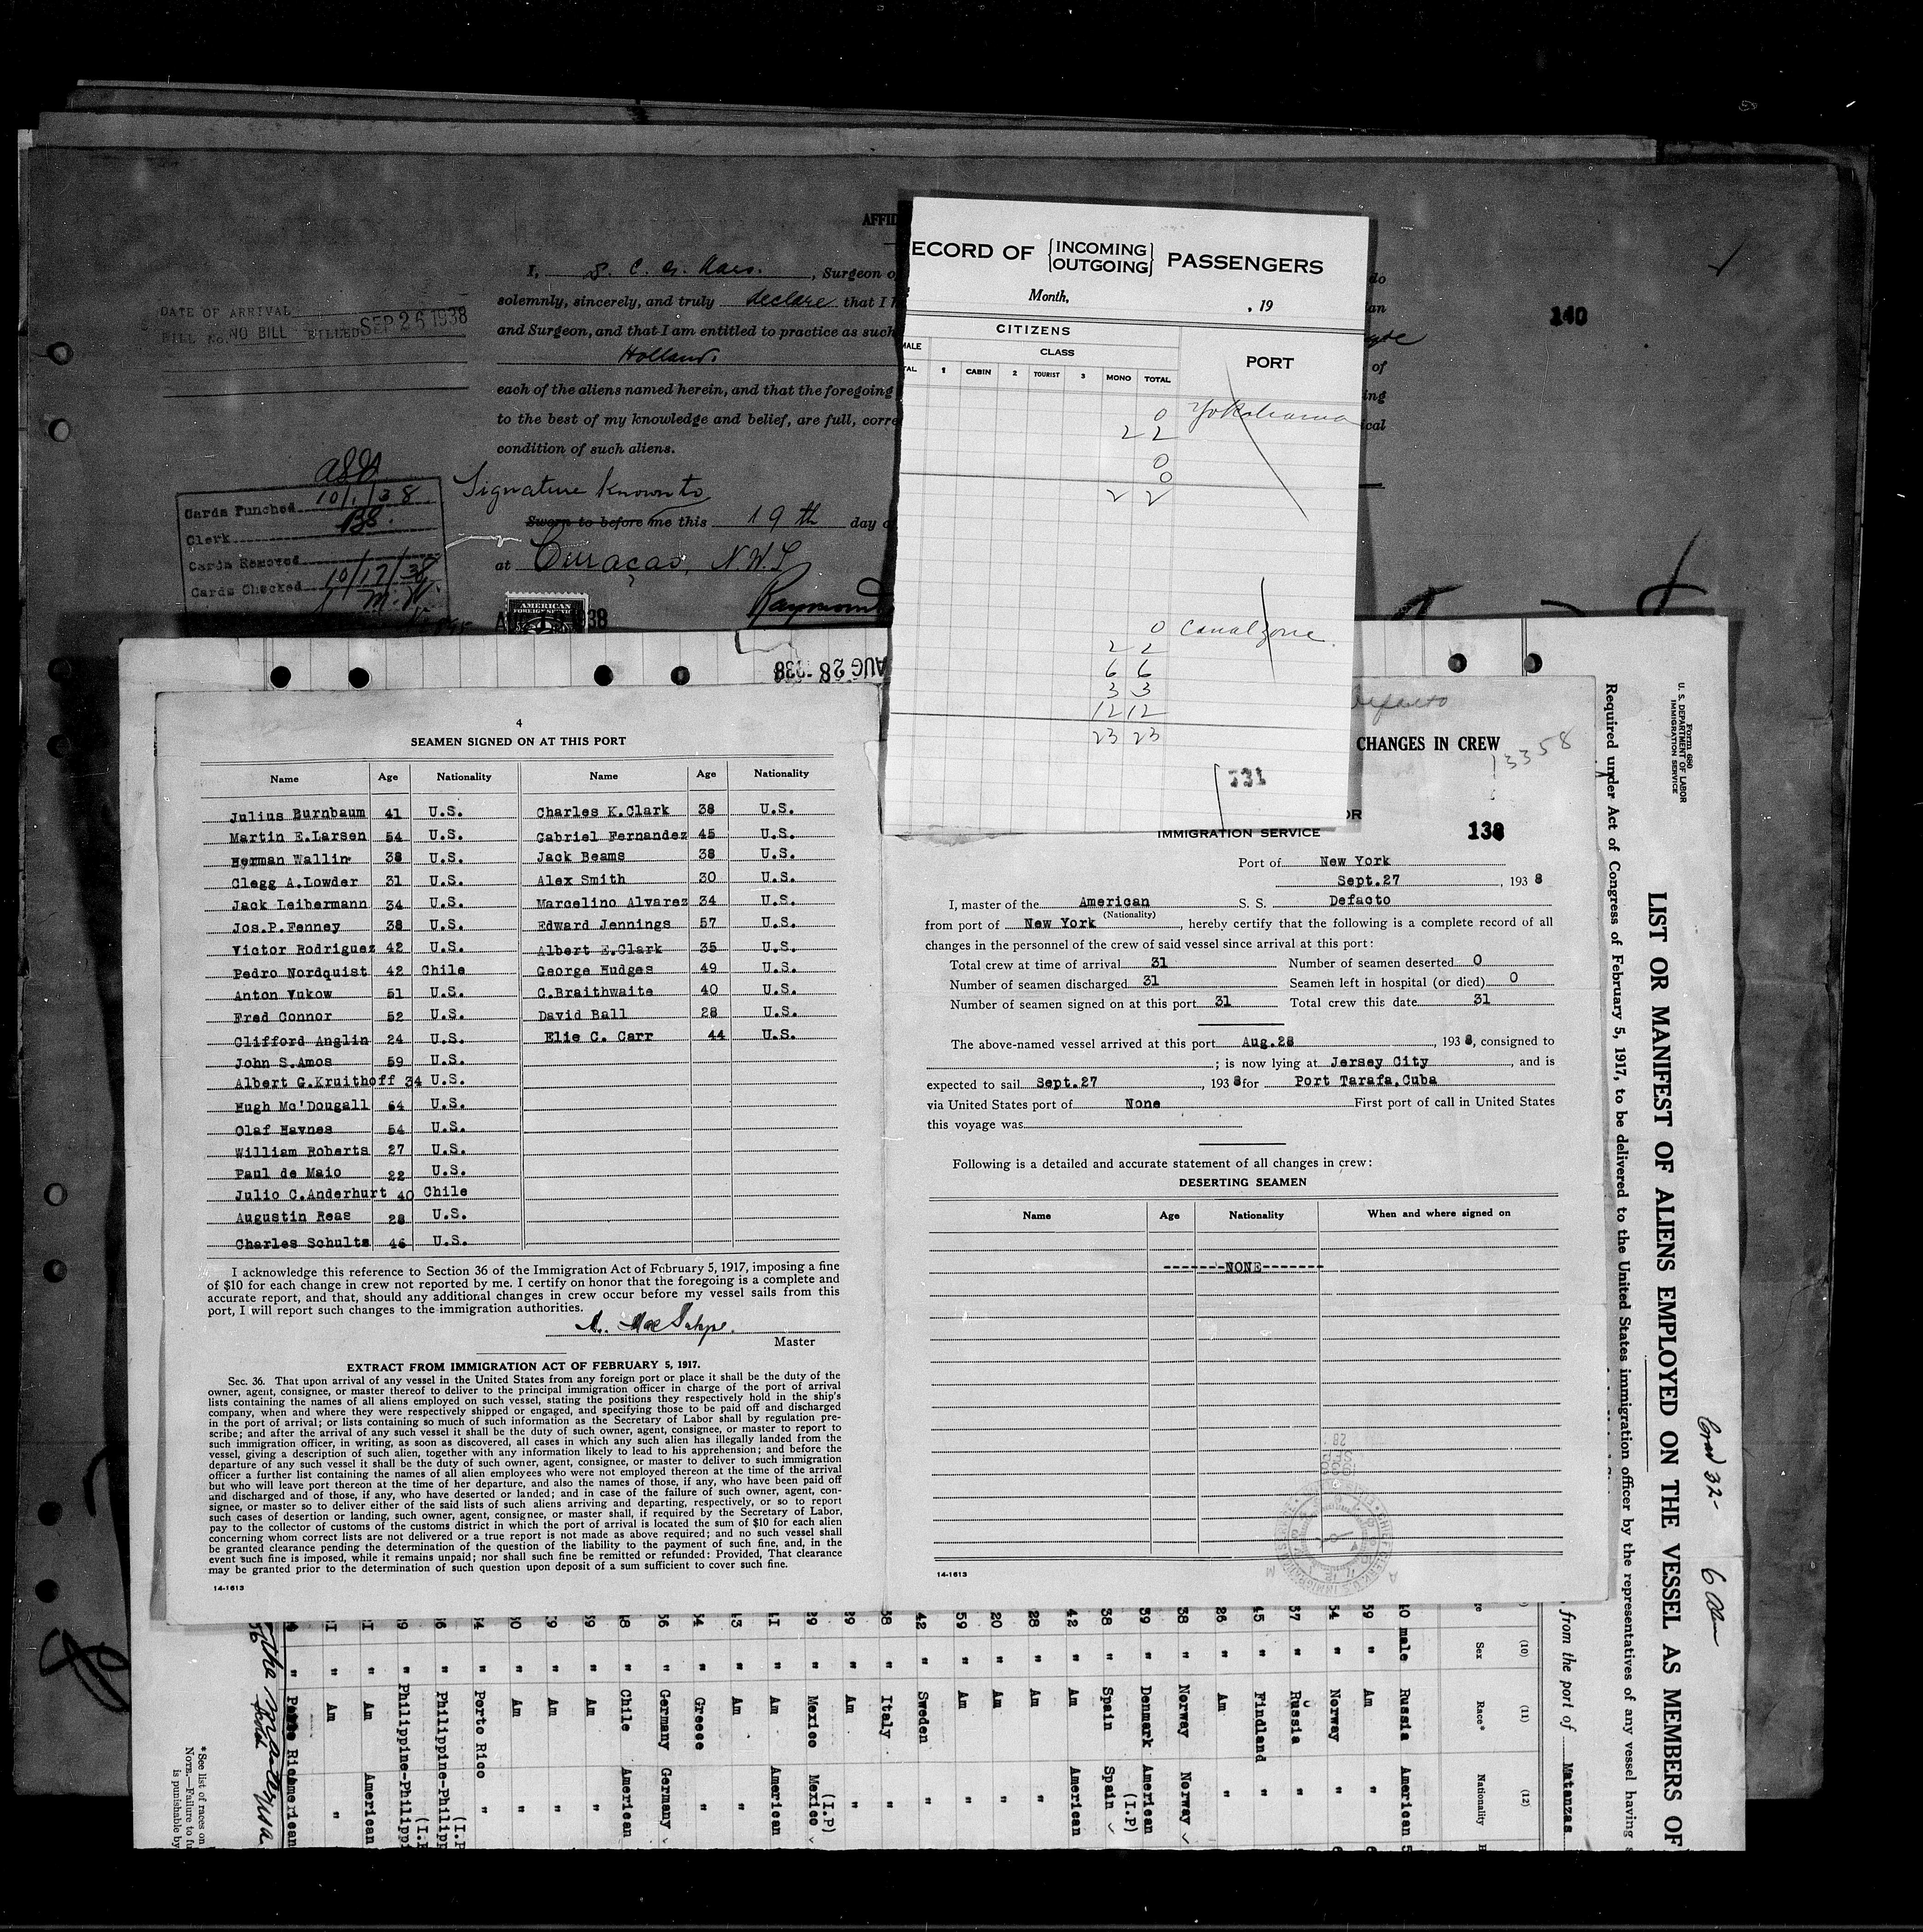 AFFID
I, S. C. G. , Surgeon o
solemnly, sincerely, and truly declare that I h
and Surgeon, and that I am entitled to practice as such
Holland.
each of the aliens named herein, and that the foregoing
to the best of my knowledge and belief, are full, corre
condition of such aliens.
Signature Known to
Sworn to before me this 19 th day o
at Curaçao, N.W.I.
Raymond
DATE OF ARRIVAL
BILL No. NO BILL BILLED SEP 26 1938
Cards Punched 10/1/38
Clerk BS.
Cards Removed
Cards Checked 10/17/38
AMERICAN
140
ECORD OF {INCOMING OUTGOING} PASSENGERS
Month, , 19
CITIZENS
MALE CLASS PORT
TAL 1 CABIN 2 TOURIST 3 MONO TOTAL
0 Yokohama
2 2
0
0
2 2
0 Canal Zone
2 2
6 6
3 3
12 12
23 23
331
AUG 28 1938
4
SEAMEN SIGNED ON AT THIS PORT
Name Age Nationality Name Age Nationality
Julius Burnbaum 41 U.S. Charles K.Clark 38 U.S.
Martin E.Larsen 54 U.S. Gabriel Fernandez 45 U.S.
Herman Wallin 38 U.S. Jack Beams 38 U.S.
Clegg A.Lowder 31 U.S. Alex Smith 30 U.S.
Jack Leibermann 34 U.S. Marcelino Alvarez 34 U.S.
Jos.P.Fenney 38 U.S. Edward Jennings 57 U.S.
Victor Rodriguez 42 U.S. Albert E.Clark 35 U.S.
Pedro Nordquist 42 Chile George Hudges 49 U.S.
Anton Yukow 51 U.S. C.Braithwaite 40 U.S.
Fred Connor 52 U.S. David Ball 28 U.S.
Clifford Anglin 24 U.S. Elie C. Carr 44 U.S.
John S.Amos 59 U.S.
Albert G.Kruithoff 34 U.S.
Hugh Mc'Dougall 64 U.S.
Olaf Havnes 54 U.S.
William Roberts 27 U.S.
Paul de Maio 22 U.S.
Julio C.Anderhurt 40 Chile
Augustin Reas 28 U.S.
Charles Schultz 46 U.S.
I acknowledge this reference to Section 36 of the Immigration Act of February 5, 1917, imposing a fine
of $10 for each change in crew not reported by me. I certify on honor that the foregoing is a complete and
accurate report, and that, should any additional changes in crew occur before my vessel sails from this
port, I will report such changes to the immigration authorities.
Master
EXTRACT FROM IMMIGRATION ACT OF FEBRUARY 5, 1917.
Sec. 36. That upon arrival of any vessel in the United States from any foreign port or place it shall be the duty of the
owner, agent, consignee, or master thereof to deliver to the principal immigration officer in charge of the port of arrival
lists containing the names of all aliens employed on such vessel, stating the positions they respectively hold in the ship's
company, when and where they were respectively shipped or engaged, and specifying those to be paid off and discharged
in the port of arrival; or lists containing so much of such information as the Secretary of Labor shall by regulation pre-
scribe; and after the arrival of any such vessel it shall be the duty of such owner, agent, consignee, or master to report to
such immigration officer, in writing, as soon as discovered, all cases in which any such alien has illegally landed from the
vessel, giving a description of such alien, together with any information likely to lead to his apprehension; and before the
departure of any such vessel it shall be the duty of such owner, agent, consignee, or master to deliver to such immigration
officer a further list containing the names of all alien employees who were not employed thereon at the time of the arrival
but who will leave port thereon at the time of her departure, and also the names of those, if any, who have been paid off
and discharged and of those, if any, who have deserted or landed; and in case of the failure of such owner, agent, con-
signee, or master so to deliver either of the said lists of such aliens arriving and departing, respectively, or so to report
such cases of desertion or landing, such owner, agent, consignee, or master shall, if required by the Secretary of Labor,
pay to the collector of customs of the customs district in which the port of arrival is located the sum of $10 for each alien
concerning whom correct lists are not delivered or a true report is not made as above required; and no such vessel shall
be granted clearance pending the determination of the question of the liability to the payment of such fine, and, in the
event such fine is imposed, while it remains unpaid; nor shall such fine be remitted or refunded: Provided, That clearance
may be granted prior to the determination of such question upon deposit of a sum sufficient to cover such fine.
14-1613
Defacto
CHANGES IN CREW
13358
OR
IMMIGRATION SERVICE
138
Port of New York
Sept.27 , 1938
I, master of the American S. S. Defacto
(Nationality)
from port of New York , hereby certify that the following is a complete record of all
changes in the personnel of the crew of said vessel since arrival at this port:
Total crew at time of arrival 31 Number of seamen deserted 0
Number of seamen discharged 31 Seamen left in hospital (or died) 0
Number of seamen signed on at this port 31 Total crew this date 31
The above-named vessel arrived at this port Aug.28 , 1938, consigned to
; is now lying at Jersey City , and is
expected to sail Sept.27 , 1938 for Port Tarafa,Cuba
via United States port of None First port of call in United States
this voyage was
Following is a detailed and accurate statement of all changes in crew:
DESERTING SEAMEN
Name Age Nationality When and where signed on
-------NONE-------
14-1613
Form 680
U. S. DEPARTMENT OF LABOR
IMMIGRATION SERVICE
LIST OR MANIFEST OF ALIENS EMPLOYED ON THE VESSEL AS MEMBERS OF
Required under Act of Congress of February 5, 1917, to be delivered to the United States immigration officer by the representatives of any vessel having
, from the port of Matanzas
(10) (11) (12)
Sex Race* Nationality
40 male Russia American
39 " Am "
54 " Norway "
37 " Russia "
45 " Findland "
26 " Am "
38 " Norway Norway
39 " Denmark American (I.P)
38 " Spain Spain
42 " Am American
28 " Am "
20 " Am "
59 " Am "
42 " Sweden "
38 " Italy "
39 " Am "
29 " Mexico Mexico (I.P)
" Am American
" Am "
" Greece "
" Germany Germany
" Chile American
" Am "
" Am "
" Am "
" Porto Rico "
" Philippine-Philipp (I.P
" Philippine-Philippi (I.P
" Am American
" Am "
*See list of races on
NOTE.—Failure to fu
is punishable by